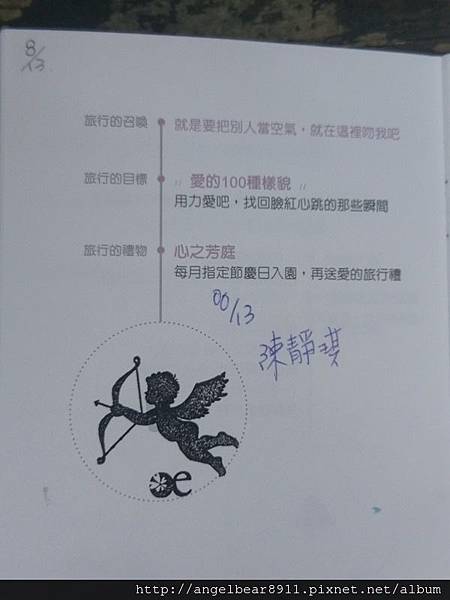 8/13
旅行的召喚 就是要把別人當空氣，就在這裡吻我吧
旅行的目標 〃 愛的100種樣貌 〃
用力愛吧，找回臉紅心跳的那些瞬間
旅行的禮物 心之芳庭
每月指定節慶日入園，再送愛的旅行禮
08/13
陳靜琪
e
http://angelbear8911.pixnet.net/album